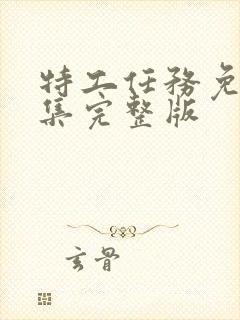 特工任务免
集完整版
玄骨